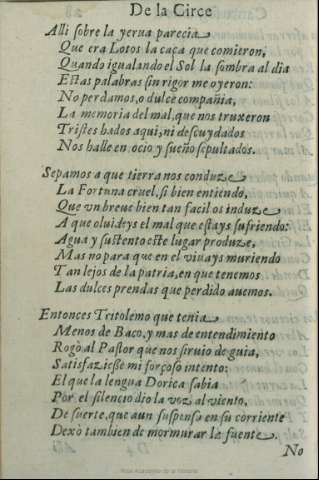 De la Circe
Alli sobre la yerua parecia
Que era Lotos la caça que comieron,
Quando igualando el Sol la sombra al dia
Estas palabras sin rigor me oyeron:
No perdamos, o dulce compañia,
La memoria del mal, que nos truxeron
Tristes hados aqui, ni descuydados
Nos halle en ocio y sueño sepultados.
Sepamos a que tierra nos conduze
La Fortuna cruel, si bien entiendo,
Que vn breue bien tan facil os induze
A que oluideys el mal que estays sufriendo:
Agua y sustento este lugar produze,
Mas no para que en el viuays muriendo
Tan lejos de la patria, en que tenemos
Las dulces prendas que perdido auemos.
Entonces Tritolemo que tenia
Menos de Baco, y mas de entendimiento
Rogò al Pastor que nos siruio de guia,
Satisfaziesse mi forçoso intento:
El que la lengua Dorica sabia
Por el silencio dio la voz al viento,
De suerte, que aun suspensa en su corriente
Dexò tambien de mormurar la fuente.
No
Real Academia de la Historia